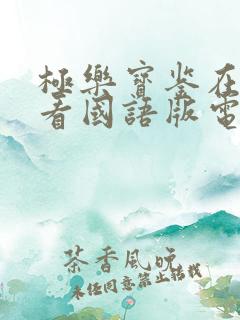 極樂寶鉴在
看國語版電
茶香風晚
未经同意禁止转载